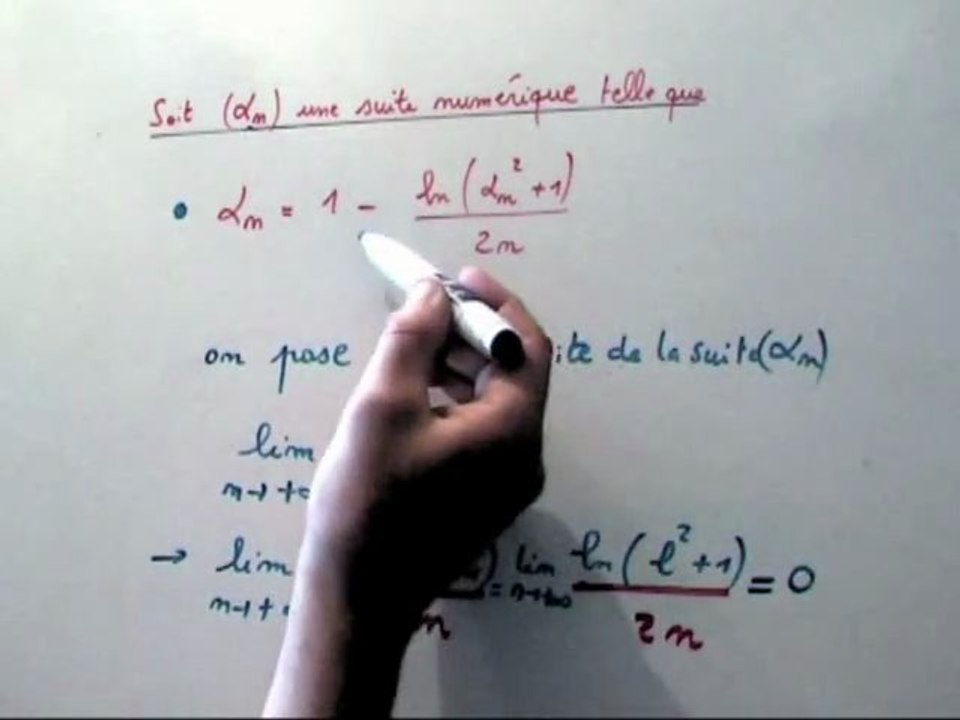 Soit (αn) une suite numérique telle que
• αn = 1 - ln(αn² + 1) / 2n
on pose de la suite (αn)
lim
n→+∞
→ lim = lim ln(ℓ² + 1) / 2n = 0
n→+ n→+∞